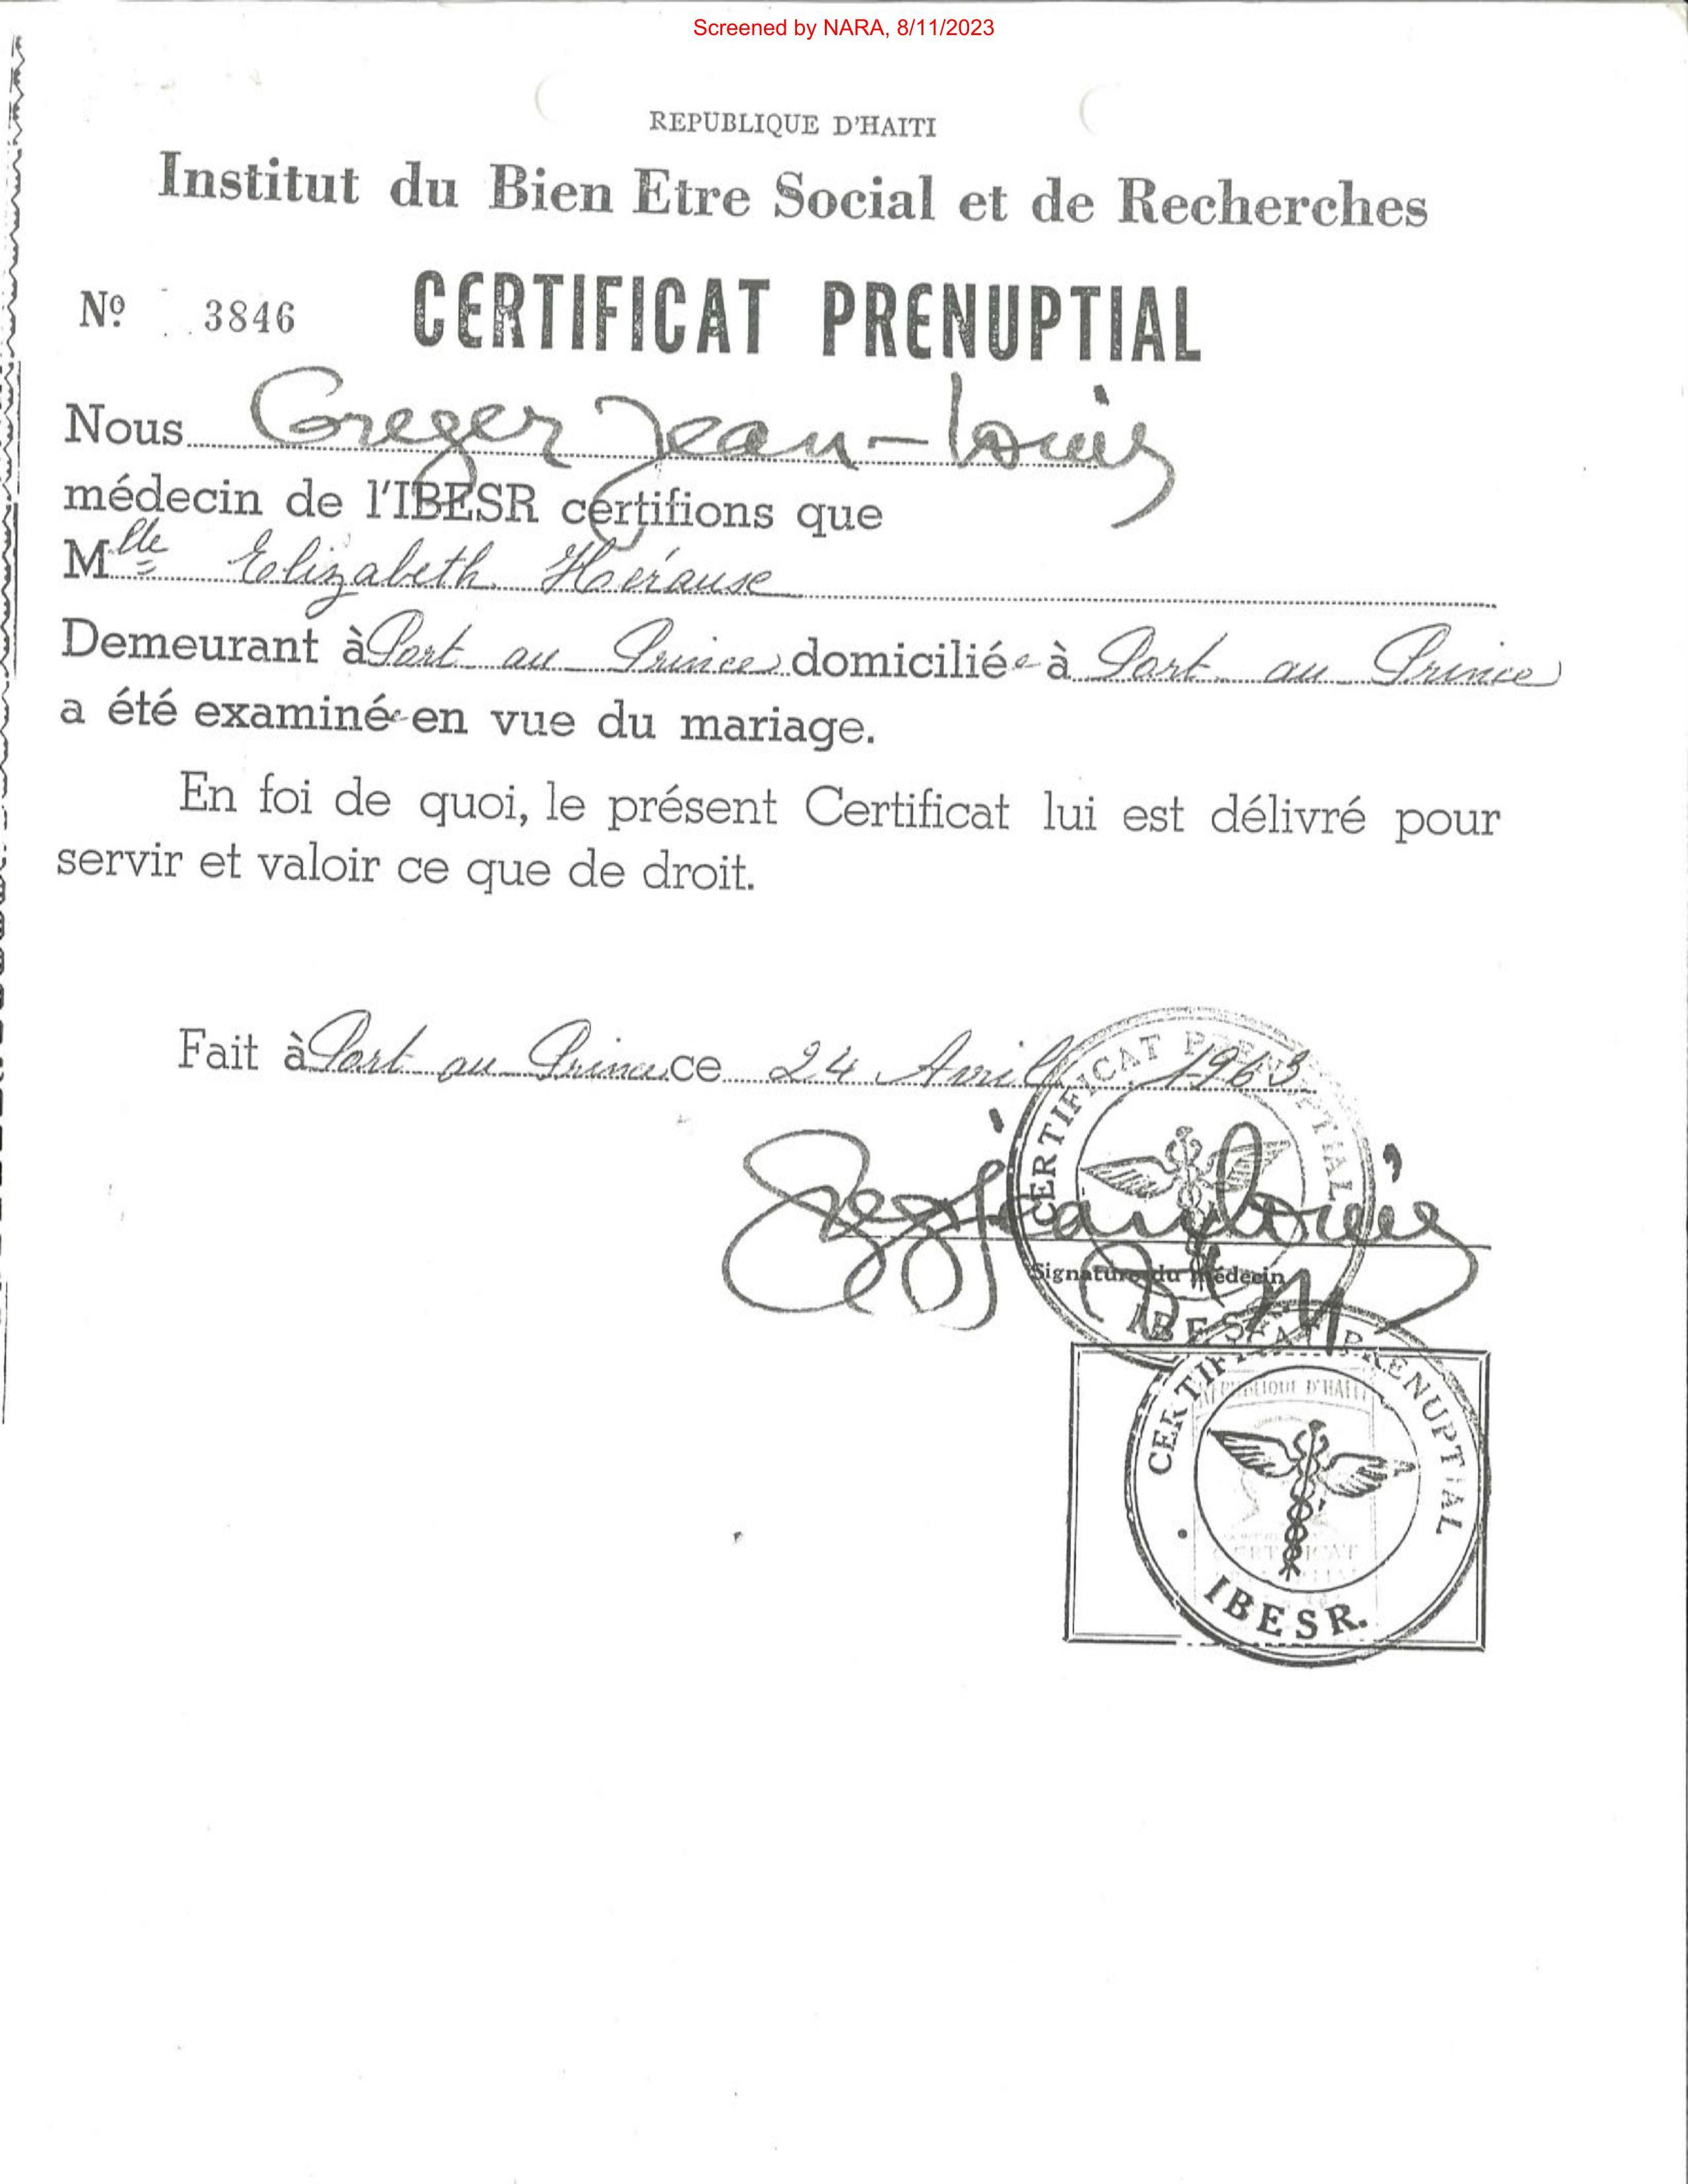 Screened by NARA, 8/11/2023
REPUBLIQUE D'HAITI
Institut du Bien Etre Social et de Recherches
Nº 3846
CERTIFICAT PRENUPTIAL
Nous Greger Jean-Louis
médecin de l'IBESR certifions que
Mlle Elizabeth
Demeurant à Port au Prince domiciliée à Port au Prince
a été examinée en vue du mariage.
En foi de quoi, le présent Certificat lui est délivré pour
servir et valoir ce que de droit.
Fait à Port au Prince ce 24 Avril 1963
CERTIFICAT PRENUPTIAL
Signature du Médecin
IBESR
CERTIFICAT PRENUPTIAL
REPUBLIQUE D'HAITI
CERTIFICAT
IBESR.